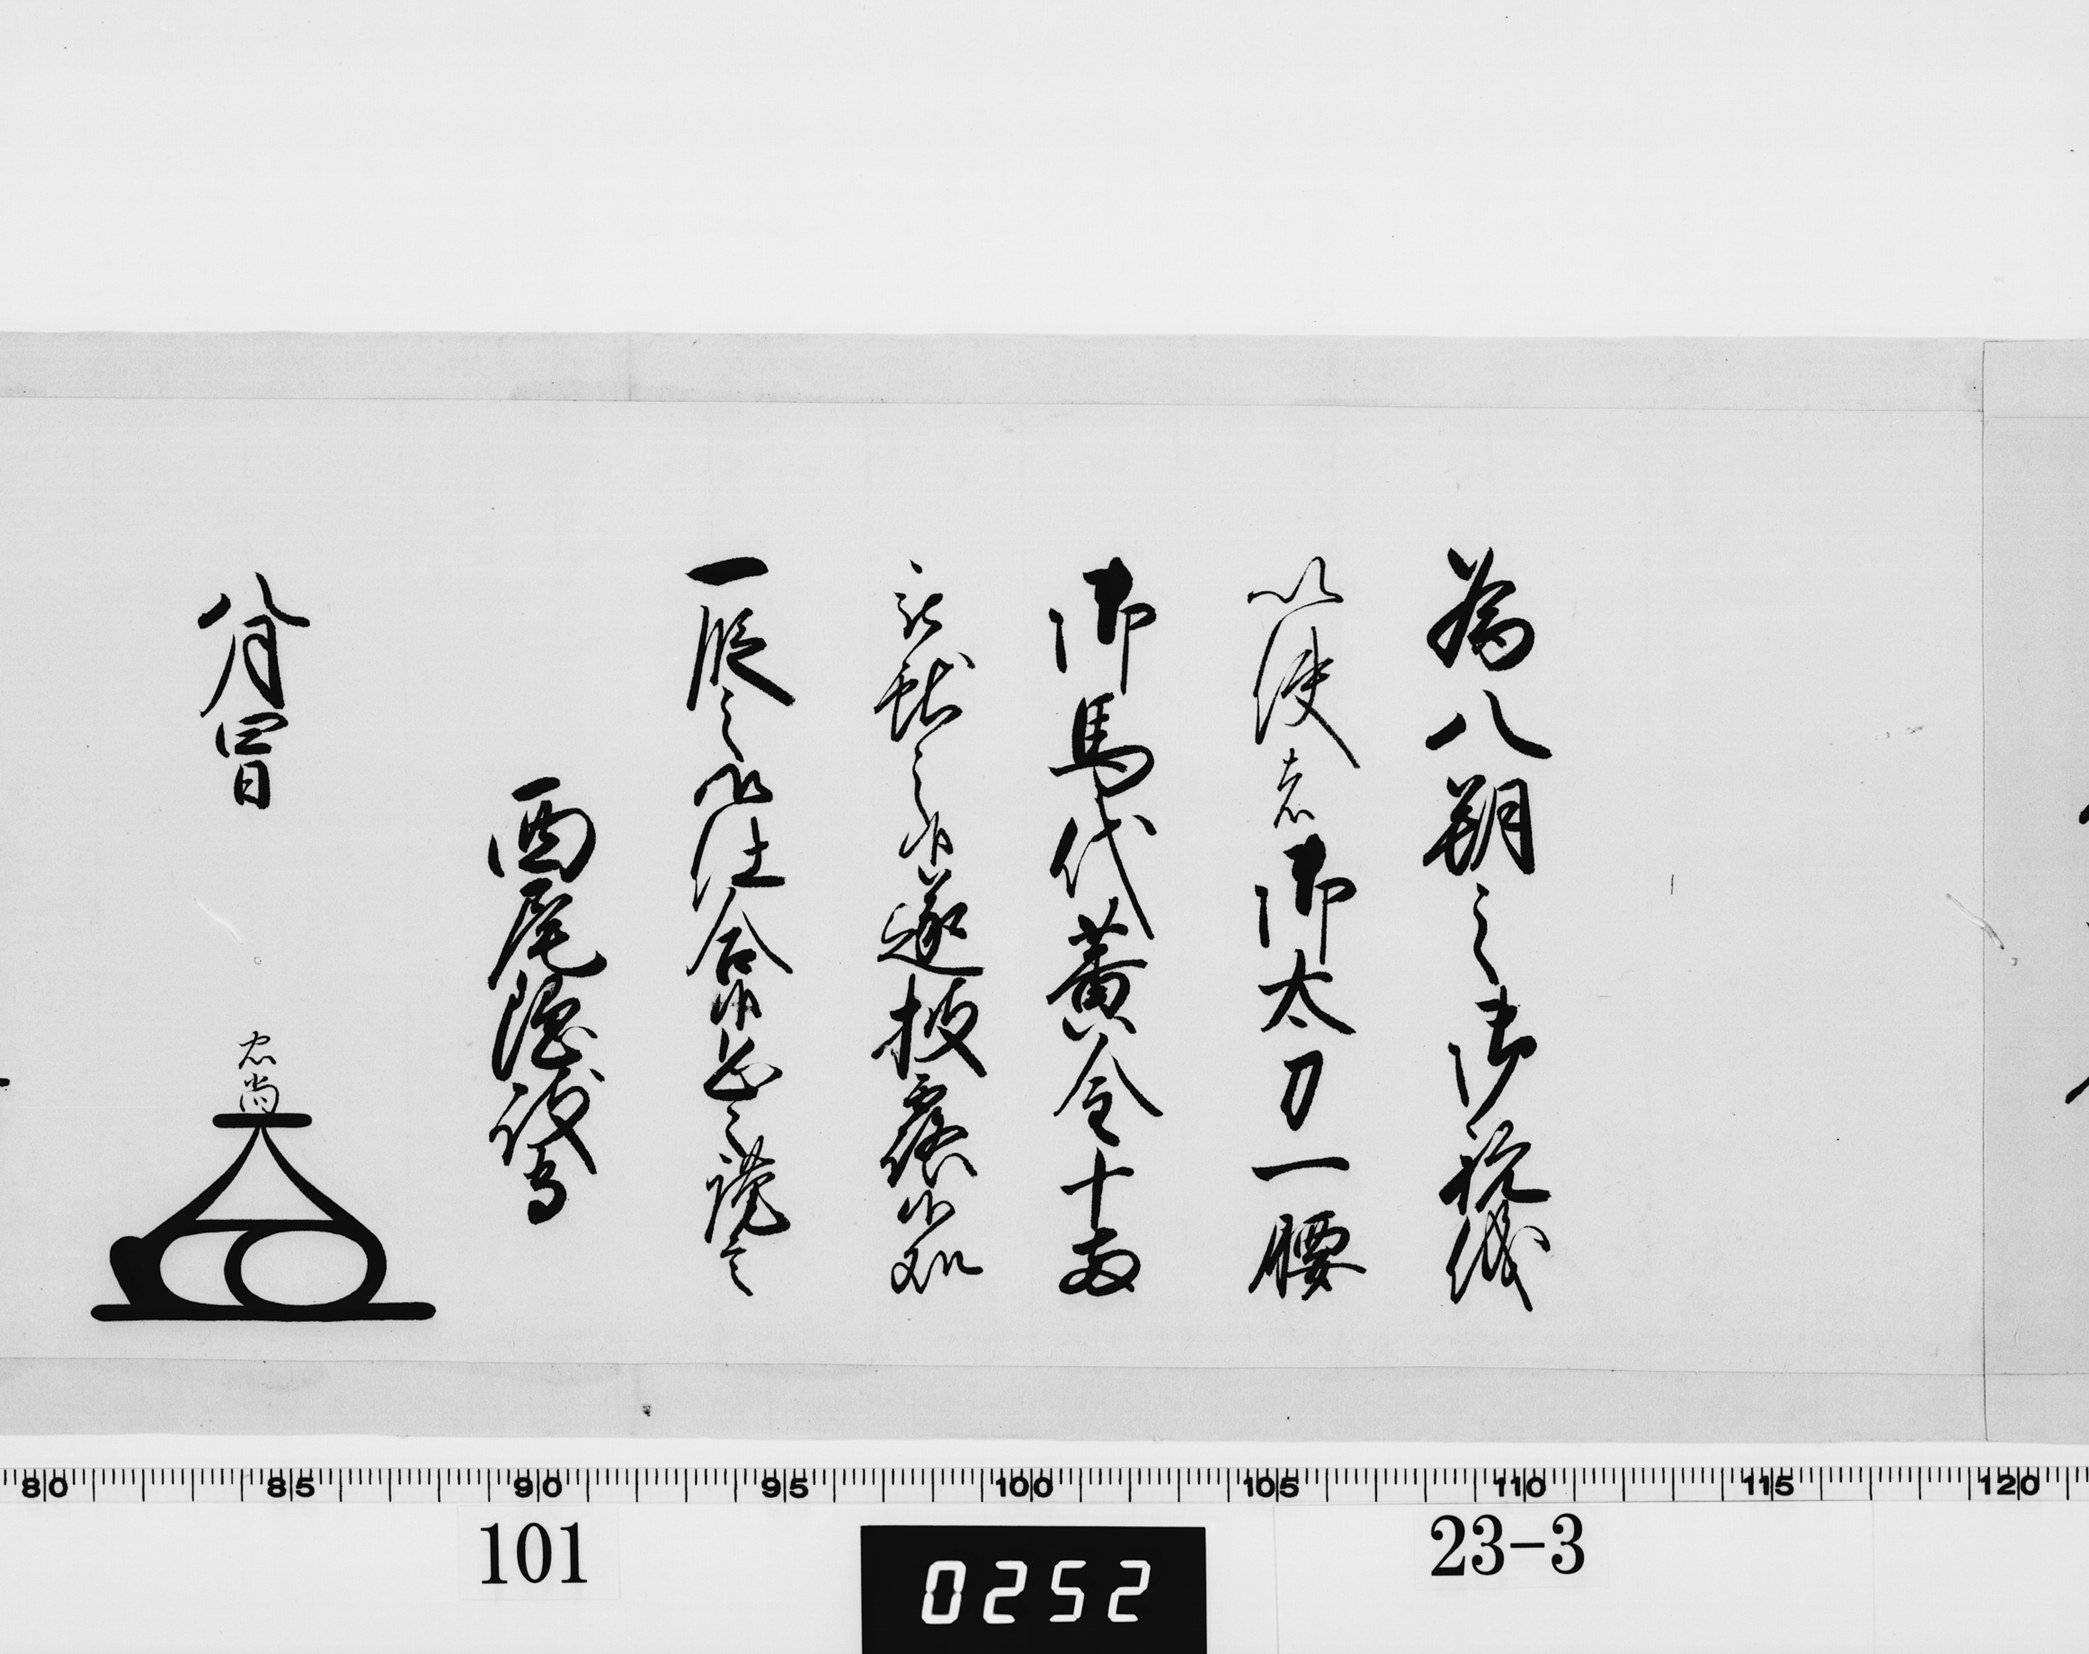 為八朔之御祝儀
以使者御太刀一腰
御馬代黄金十両
被献之候遂披露候処
一段之御仕合候恐々謹言
西尾隠岐守
八月四日
忠尚
80 85 90 95 100 105 110 115 120
101
0252
23-3